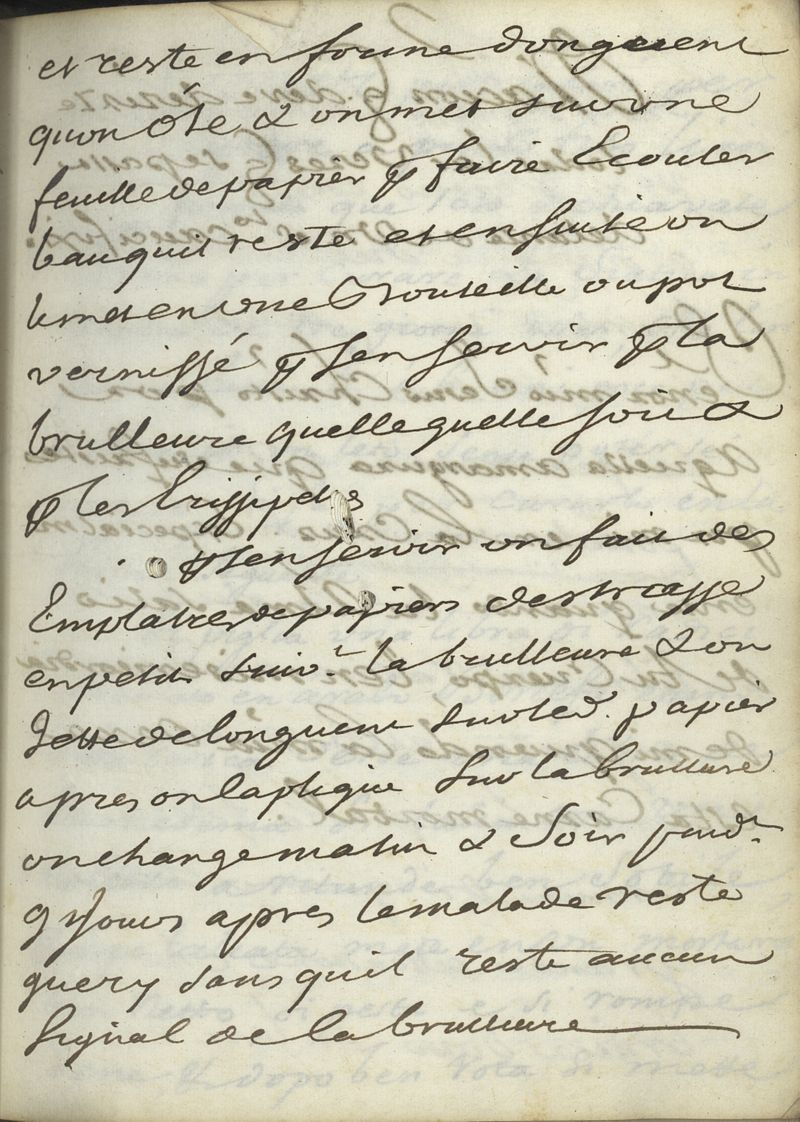 et reste en forme donguent
quon ôte & on met sur une
feuille de papier p faire Ecouler
leau quil reste et ensuite on
le met en une Bouteille ou pot
vernissé p sen servir p la
brulleure quelle quelle soit &
p les Erissipeles
p sen servir on fait des
Emplatres de papiers destrasse
en petit suivt la brulleure & on
Jette de longuent sur led. papier
apres on laplique sur la brulleure
on change matin & Soir pendt
9 Jours apres le malade reste
guery sans quil reste aucun
signal de la brulleure